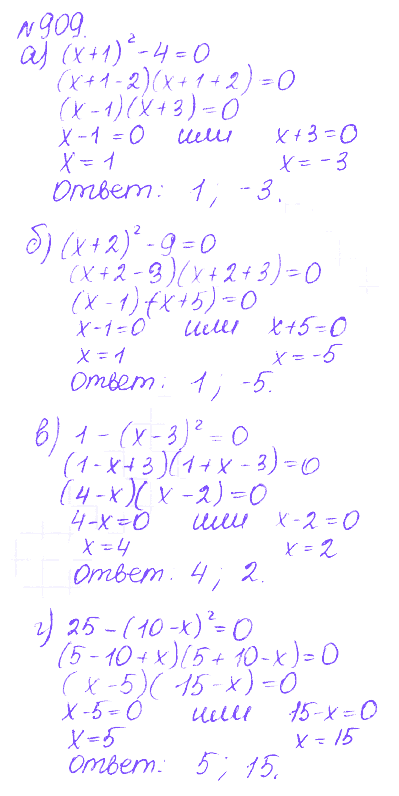 №909.
а) (x+1)² - 4 = 0
(x+1-2)(x+1+2) = 0
(x-1)(x+3) = 0
x-1 = 0 или x+3 = 0
x = 1 x = -3
Ответ: 1; -3.
б) (x+2)² - 9 = 0
(x+2-3)(x+2+3) = 0
(x-1)(x+5) = 0
x-1=0 или x+5=0
x = 1 x = -5
Ответ: 1; -5.
в) 1 - (x-3)² = 0
(1-x+3)(1+x-3) = 0
(4-x)(x-2) = 0
4-x=0 или x-2=0
x=4 x=2
Ответ. 4; 2.
г) 25 - (10-x)² = 0
(5-10+x)(5+10-x) = 0
(x-5)(15-x) = 0
x-5=0 или 15-x=0
x=5 x=15
Ответ: 5; 15.